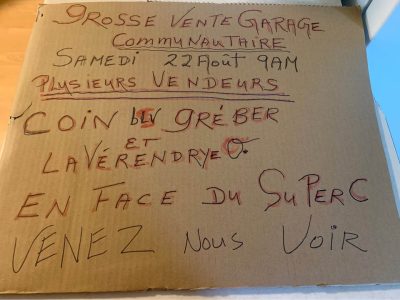 GROSSE VENTE GARAGE
COMMUNAUTAIRE
SAMEDI 22 AOÛT 9AM
PLUSIEURS VENDEURS
COIN BLV GRÉBER
ET
LA VÉRENDRYE O.
EN FACE DU SUPER C
VENEZ NOUS VOIR